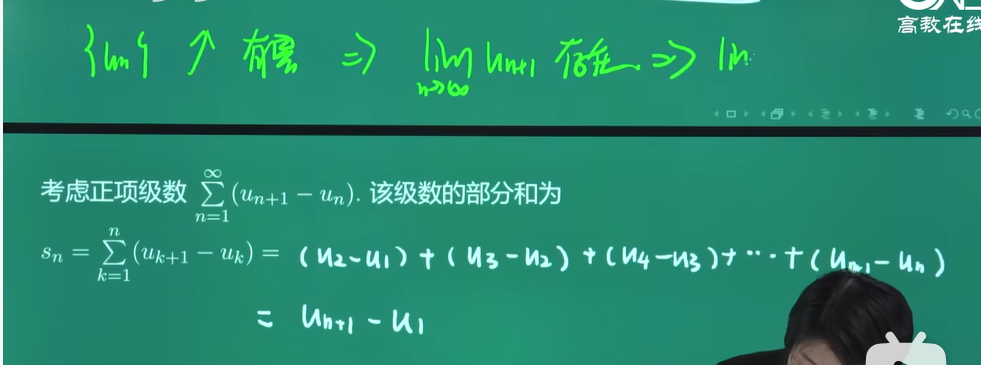 高教在线
{un} ↑ 有界 ⇒ lim n→∞ un+1 存在. ⇒ lim
考虑正项级数 ∑_{n=1}^{∞} (u_{n+1} − u_n). 该级数的部分和为
s_n = ∑_{k=1}^{n} (u_{k+1} − u_k) = (u2−u1) + (u3−u2) + (u4−u3) + ··· + (un+1−un)
= un+1 − u1